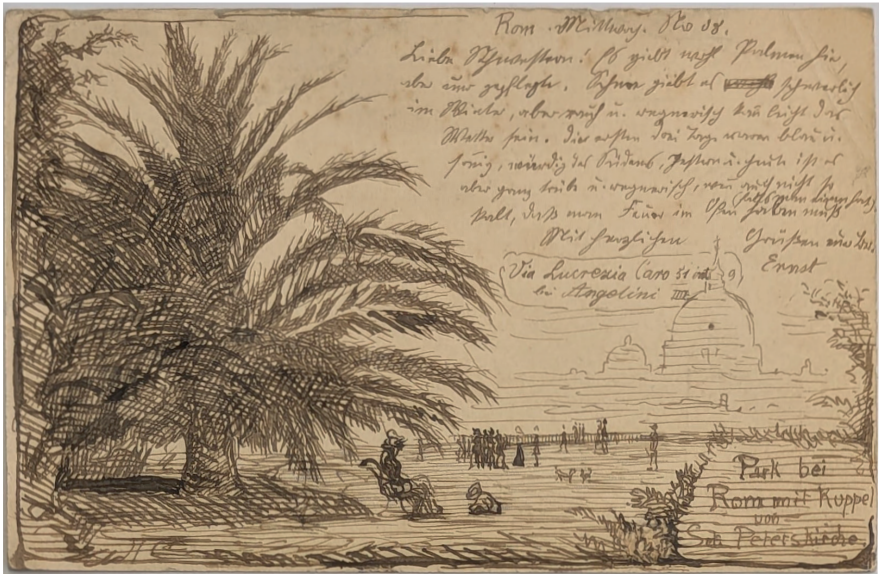 Rom. Mittwoch. No 08.
Liebe Schwestern! Es giebt wohl Palmen hie,
abe nur gepflegte. Schnee giebt es schwerlich
im Winte, aber rauh u. regnerisch kann leicht das
Wette sein. Die ersten drei Tage waren blau u.
sonnig, würdig des Südens, gestern u. heute ist es
aber ganz trübe u. regnerisch, wen auch nicht so
kalt, daß man Feuer im Ofen haben muß
(falls man einen hat).
Mit herzlichen Grüßen
Ernst
Via Lucrezia Caro 51
bei Angelini IIII
Park bei
Rom mit Kuppel
von
Sct. Peterskirche